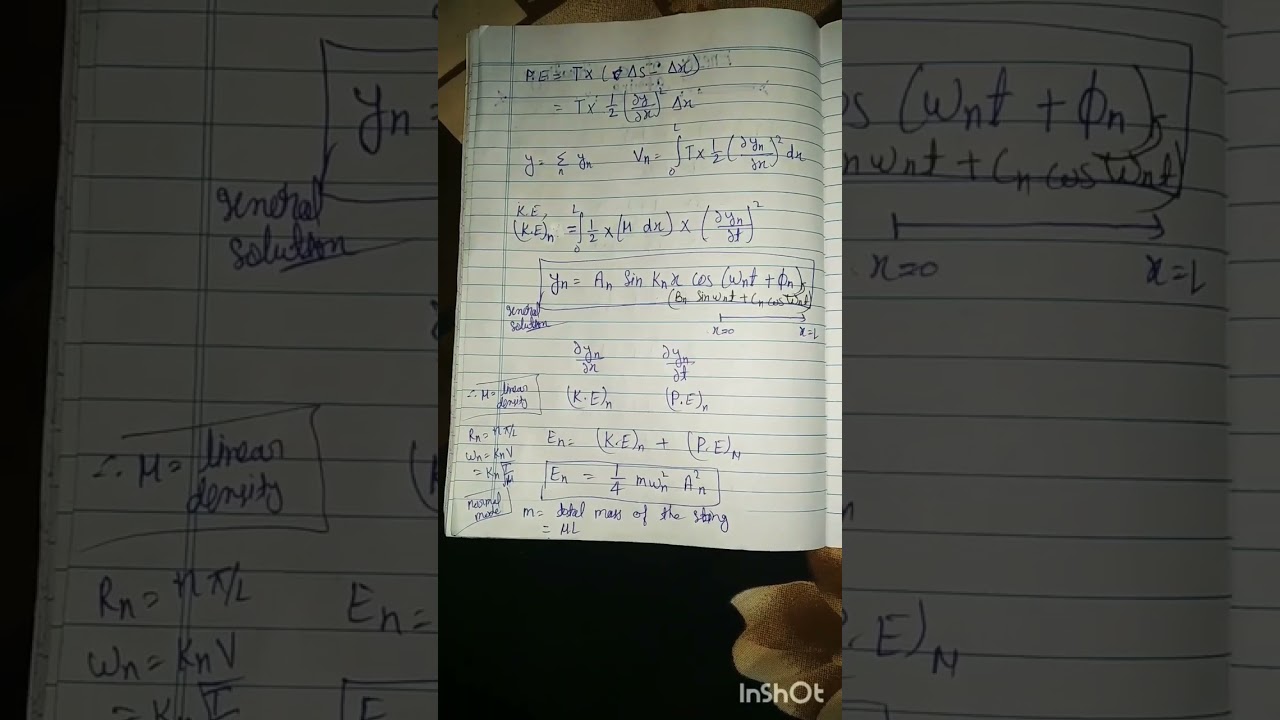 P.E = T × (Δs - Δx)
= T × 1/2 (∂y/∂x)² Δx
y = Σₙ yₙ Vₙ = ∫₀ᴸ T × 1/2 (∂yₙ/∂x)² dx
K.E,
(K.E)ₙ = ∫₀ᴸ 1/2 × (μ dx) × (∂yₙ/∂t)²
yₙ = Aₙ sin Kₙx cos (ωₙt + ϕₙ)
(Bₙ sin ωₙt + Cₙ cos ωₙt)
general
solution
x=0 x=L
∂yₙ/∂x ∂yₙ/∂t
∴ μ = linear
density
(K.E)ₙ (P.E)ₙ
Rₙ = nπ/L
ωₙ = KₙV
= Kₙ √T/μ
normal
mode
Eₙ = (K.E)ₙ + (P.E)N
Eₙ = 1/4 mωₙ² Aₙ²
m = total mass of the string
= μL
InShOt